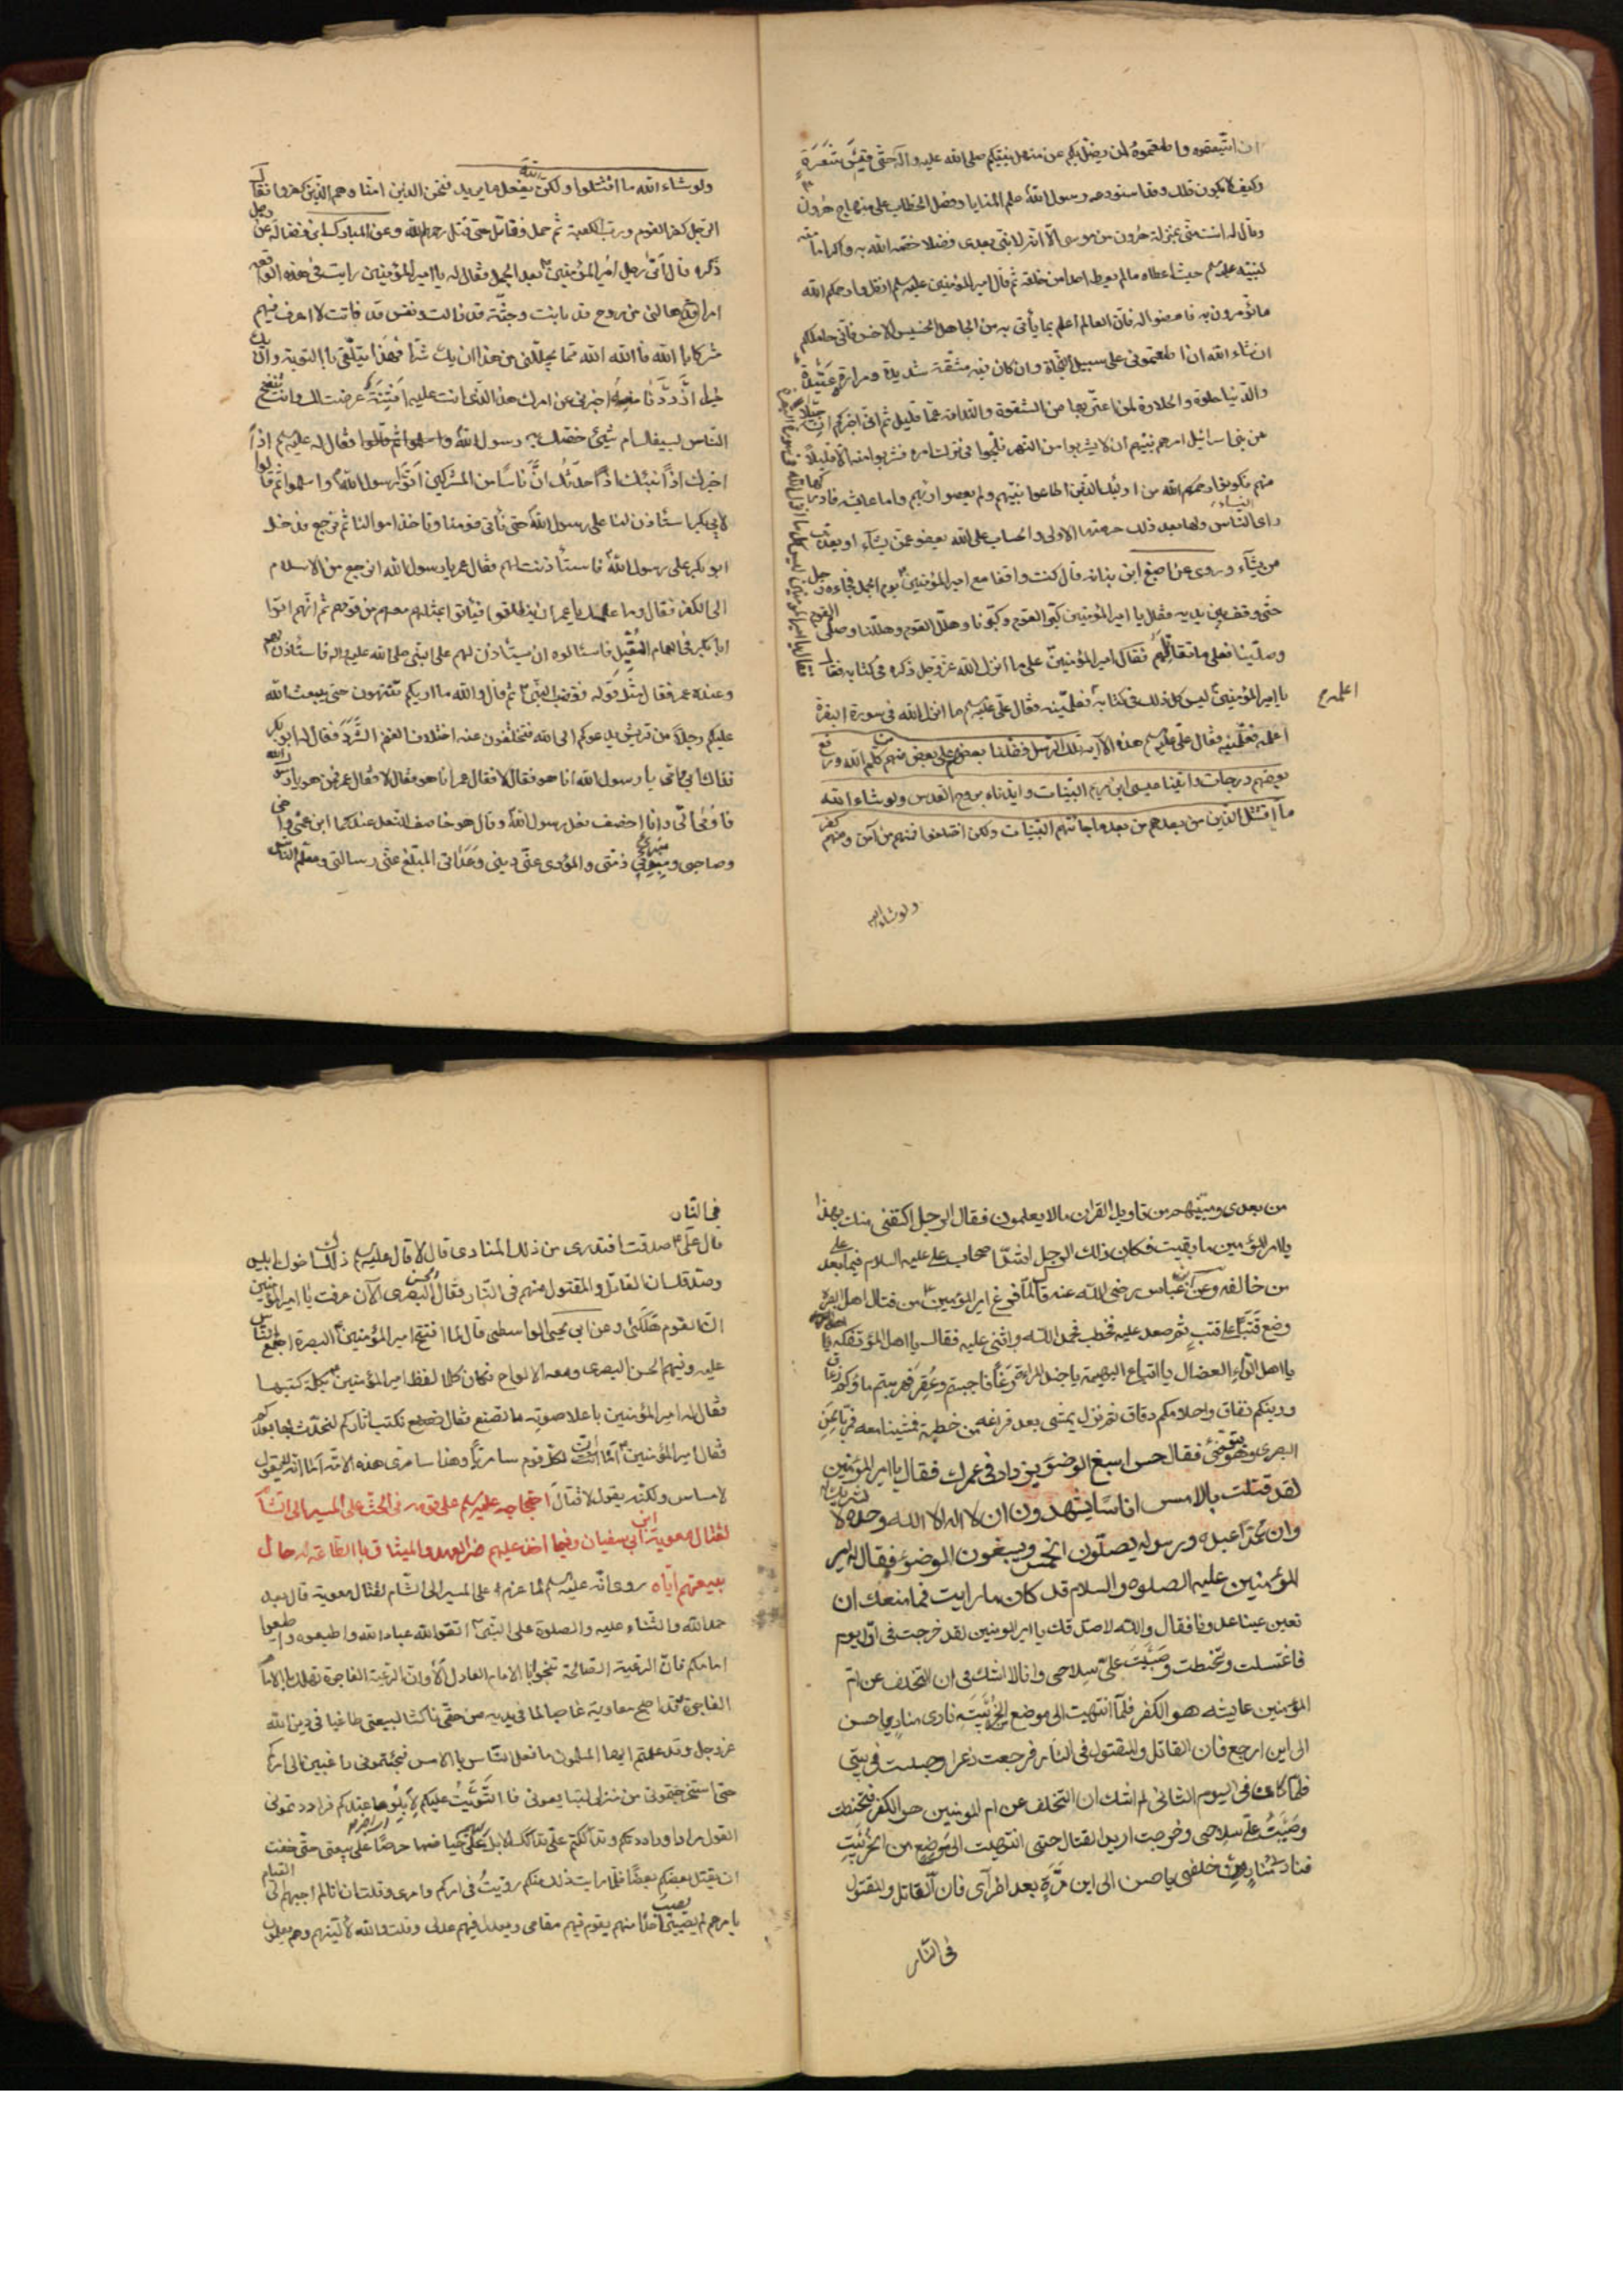 ان اتبعتموه واطعتموه لن يضل بكم عن منهل نبيكم صلى الله عليه وآله حتى قيس شعرة
وكيف لا يكون ذلك وقد استودعه رسول الله علم المنايا وفصل الخطاب على منهاج هرون
وقال له انت منى بمنزلة هرون من موسى الا انه لا نبى بعدى فضلا خصه الله به واكراما منه
لنبيه عليه السلم حيث اعطاه ما لم يعط احدا من خلقه ثم قال امير المؤمنين عليه السلم انظروا رحمكم الله
ما تؤمرون به فامضوا له فان العالم اعلم بما يأتى به من الجاهل الخسيس الاخس فانى حاملكم
ان شاء الله ان اطعتمونى على سبيل النجاة وان كان فيه مشقة شديدة ومرارة عتيدة
والدنيا حلوة والحلاوة لمن اغتر بها من الشقوة والندامة عما قليل ثم انى اخبركم ان جيلا
من بنى اسرائيل امرهم نبيهم ان لا يشربوا من النهر فلجوا فى ترك امره فشربوا منه الا قليلا
منهم فكونوا رحمكم الله من اولئك الذين اطاعوا نبيهم ولم يعصوا ربهم واما عايشه فادركها
راى النساء ولها بعد ذلك حرمتها الاولى والحساب على الله يعفو عمن يشآء ويعذب
من يشآء وروى عن اصبغ ابن نباته قال كنت واقفا مع امير المؤمنين يوم الجمل فجاءه رجل
حتى وقف بين يديه فقال يا امير المؤمنين كبر القوم وكبرنا وهلل القوم وهللنا وصلى القوم
وصلينا فعلى ما نقاتلهم فقال امير المؤمنين على ما انزل الله عز وجل ذكره فى كتابه فقال
يا امير المؤمنين ليس كل ذلك فى كتابه فعلمنيه فقال على عليه السلم ما انزل الله فى سورة البقرة
اعلمه فعلمنيه فقال على عليه السلم هذه الآية تلك الرسل فضلنا بعضهم على بعض منهم من كلم الله ورفع
بعضهم درجات واتينا عيسى ابن مريم البينات وايدناه بروح القدس ولو شاء الله
ما اقتتل الذين من بعدهم من بعد ما جائتهم البينات ولكن اختلفوا فمنهم من آمن ومنهم من كفر
ولو شاء الله
ولو شاء الله ما اقتتلوا ولكن الله يفعل ما يريد فنحن الذين امنا وهم الذين كفروا فقال
الرجل كفر القوم ورب الكعبة ثم حمل فقاتل حتى قتل رحمه الله وعن المبارك ابن فضالة عن رجل
ذكره قال اتى رجل امير المؤمنين بعد الجمل فقال له يا امير المؤمنين رايت فى هذه الواقعة
امرا هالنى من روح قد بانت وجثة قد زالت ونفس قد فاتت لا اعرف فيهم
مشركا بالله فالله الله مما يجللنى من هذا ان يك شرا فهذا يتلقى بالتوبة وان يك
خيرا ازددنا منه اخبرنى عن امرك هذا الذى انت عليه افتنة عرضت لك وانت تنفح
الناس بسيفك ام شيئ خصك به رسول الله فقال له عليه السلم اذا
اخبرك اذا انبئك اذا احدثك ان ناسا من المشركين اتوا رسول الله واسلموا ثم قالوا
لابى بكر استأذن لنا على رسول الله حتى نأتى قومنا وناخذ اموالنا ثم نرجع فدخل
ابو بكر على رسول الله فاستأذنت لهم فقال عمر يا رسول الله انرجع من الاسلام
الى الكفر فقال وما علمك يا عمر ان ينطلقوا فيأتوا بمثلهم معهم من قومهم ثم انهم اتوا
ابا بكر فى العام المقبل فاسئالوه ان يستأذن لهم على النبى صلى الله عليه واله فاستأذن لهم
وعنده عمر فقال مثل قوله فغضب النبى ثم قال والله ما اريكم تنتهون حتى يبعث الله
عليكم رجلا من قريش يدعوكم الى الله فتختلفون عنه اختلاف الغنم الشرد فقال له ابو بكر
فداك ابى وامى يا رسول الله انا هو فقال لا فقال عمر انا هو فقال لا فقال عمر فمن هو يا رسول الله
فاومى الى وانا اخصف نعل رسول الله وقال هو خاصف النعل عندكما ابن عمى واخى
وصاحبى ومبرئ ذمتى والمؤدى عنى دينى وعداتى المبلغ عنى رسالتى ومعلم الناس
من بعدى ومبينهم من تاويل القران ما لا يعلمون فقال الرجل اكتفى منك بهذا
يا امير المؤمنين ما بقيت فكان ذلك الرجل اشد اصحاب على عليه السلام فيما بعد على
من خالفه وعن ابن عباس رضى الله عنه قال لما فرغ امير المؤمنين من قتال اهل البصره
وضع قتبا على قتب ثم صعد عليه فخطب فحمد الله واثنى عليه فقال يا اهل المؤتفكه يا
يا اهل الداء العضال يا اتباع البهيمة يا جند المراة رغا فاجبتم وعقر فهربتم ماؤكم زعاق
ودينكم نفاق واحلامكم دقاق ثم نزل يمشى بعد فراغه من خطبته فمشينا معه فمر بالحسن
البصرى وهو يتوضئ فقال حسن اسبغ الوضؤ يزداد فى عمرك فقال يا امير المؤمنين
لقد قتلت بالامس اناسا يشهدون ان لا اله الا الله وحده لا شريك له
وان محمدا عبده ورسوله يصلون الخمس ويسبغون الوضوء فقال له امير
المؤمنين عليه الصلوه والسلام قد كان ما رايت فما منعك ان
تعين علينا عدونا فقال والله لاصدقك يا امير المومنين لقد خرجت فى اول يوم
فاغتسلت وتحنطت وصببت على سلاحى وانا لا اشك فى ان التخلف عن ام
المؤمنين عايشه هو الكفر فلما انتهيت الى موضع الخريبة نادى منادى يا حسن
الى اين ارجع فان القاتل والمقتول فى النار فرجعت ذعرا وجلست فى بيتى
فلما كان فى اليوم الثانى لم اشك ان التخلف عن ام المومنين هو الكفر فتحنطت
وصببت على سلاحى وخرجت اريد القتال حتى انتهيت الى موضع من الخريبة
فنادى مناد من خلفى يا حسن الى اين مرة بعد اخرى فان القاتل والمقتول
فى النار
فى النار
قال على صدقت افتدرى من ذلك المنادى قال لا قال عليه السلم ذلك اخوك ابليس
وصدقك ان القاتل والمقتول منهم فى النار فقال الحسن البصرى الآن عرفت يا امير المؤمنين
ان القوم هلكى وعن ابى يحيى الواسطى قال لما افتتح امير المؤمنين البصرة اجتمع الناس
عليه وفيهم الحسن البصرى ومعه الالواح فكان كلما لفظ امير المؤمنين بكلمة كتبها
فقال له امير المؤمنين باعلا صوته ما تصنع فقال نكتب اثاركم لنحدث بها بعدكم
فقال امير المؤمنين اما ان لكل قوم سامريا وهذا سامرى هذه الامة اما انه لا يقول
لا مساس ولكنه يقول لا قتال احتجاجه عليه السلم على قومه فى الحث على المسير الى الشام
لقتال معوية ابن ابى سفيان وفيما اخذ عليهم من العهد والميثاق بالطاعة له حال
بيعتهم اياه روى انه عليه السلم لما عزم على المسير الى الشام لقتال معوية قال بعد
حمد الله والثناء عليه والصلوة على النبى اتقوا الله عباد الله واطيعوه واطيعوا
امامكم فان الرعية الصالحة تنجوا بالامام العادل الا وان الرعية الفاجرة تهلك بالامام
الفاجر وقد اصبح معاوية غاصبا لما فى يديه من حقى ناكثا لبيعتى طاغيا فى دين الله
عز وجل وقد علمتم ايها المسلمون ما فعل الناس بالامس فجئتمونى راغبين الى امركم
حتى استخرجتمونى من منزلى لتبايعونى فالتويت عليكم لابلو ما عندكم فراددتمونى
القول مرارا وراددتكم وتداككتم على تداكك الابل على حياضها حرصا على بيعتى حتى خفت
ان يقتل بعضكم بعضا فلما رايت ذلك منكم رويت فى امركم وامرى وقلت ان انا لم اجبهم الى القيام
بامرهم لم يصيبوا احدا منهم يقوم فيهم مقامى ويعدل فيهم عدلى وقلت والله لالينهم وهم يعلمون